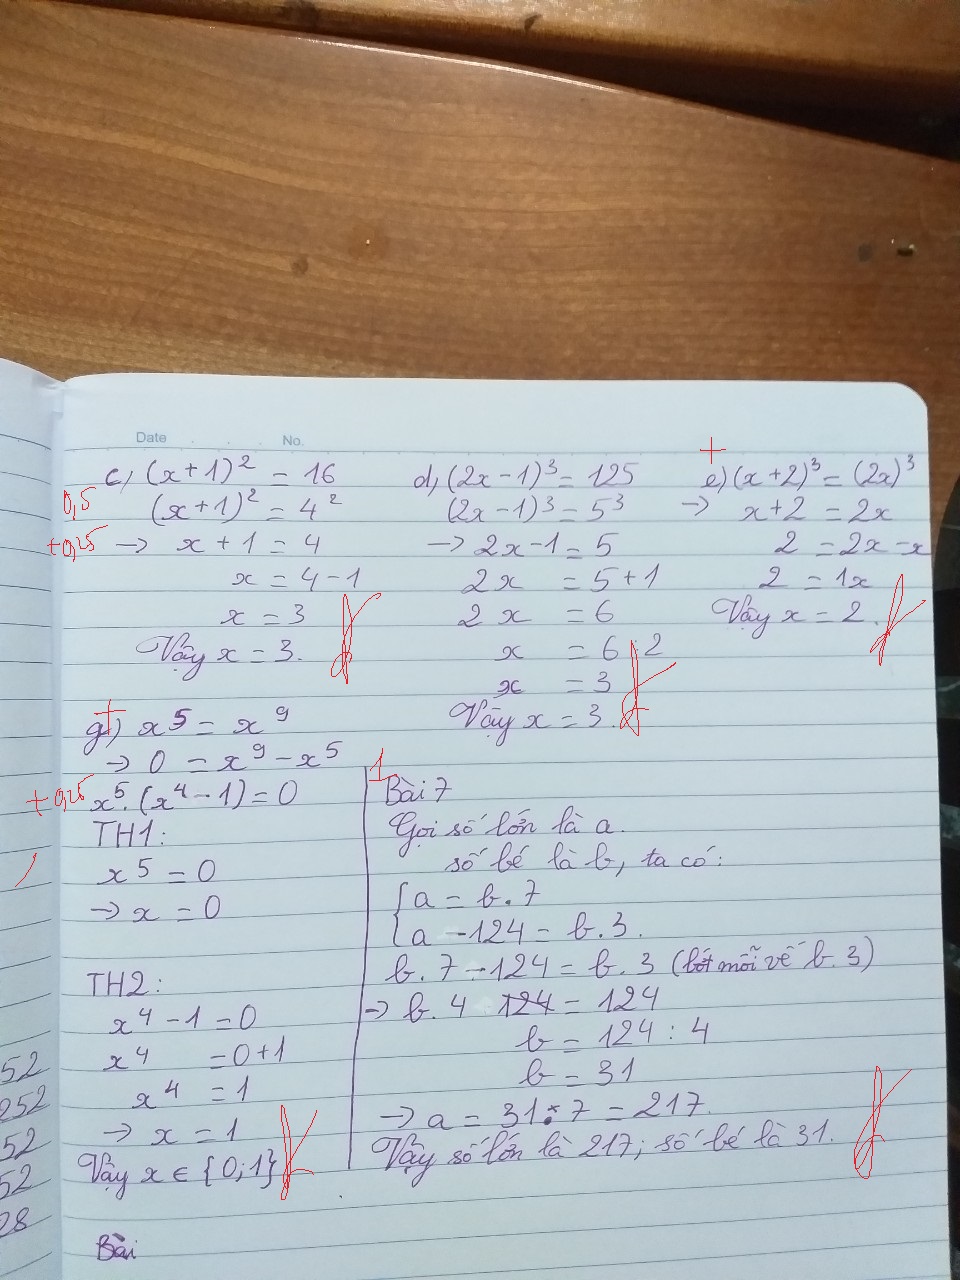 Date No.
c, (x+1)² = 16
0,5
(x+1)² = 4²
+0,25
→ x + 1 = 4
x = 4 - 1
x = 3
Vậy x = 3.
d, (2x - 1)³ = 125
(2x - 1)³ = 5³
→ 2x - 1 = 5
2x = 5 + 1
2x = 6
x = 6 : 2
x = 3
Vậy x = 3.
+
e) (x+2)³ = (2x)³
→ x + 2 = 2x
2 = 2x - x
2 = 1x
Vậy x = 2.
+
g) x⁵ = x⁹
→ 0 = x⁹ - x⁵
+0,25
x⁵. (x⁴ - 1) = 0
TH1:
x⁵ = 0
→ x = 0
TH2:
x⁴ - 1 = 0
x⁴ = 0 + 1
x⁴ = 1
→ x = 1
Vậy x ∈ {0; 1}
1
Bài 7
Gọi số lớn là a.
số bé là b, ta có:
{ a = b . 7
{ a - 124 = b . 3.
b . 7 - 124 = b . 3 (bớt mỗi vế b . 3)
→ b . 4 124 = 124
b = 124 : 4
b = 31
→ a = 31 . 7 = 217.
Vậy số lớn là 217; số bé là 31.
Bài
52
252
52
52
28